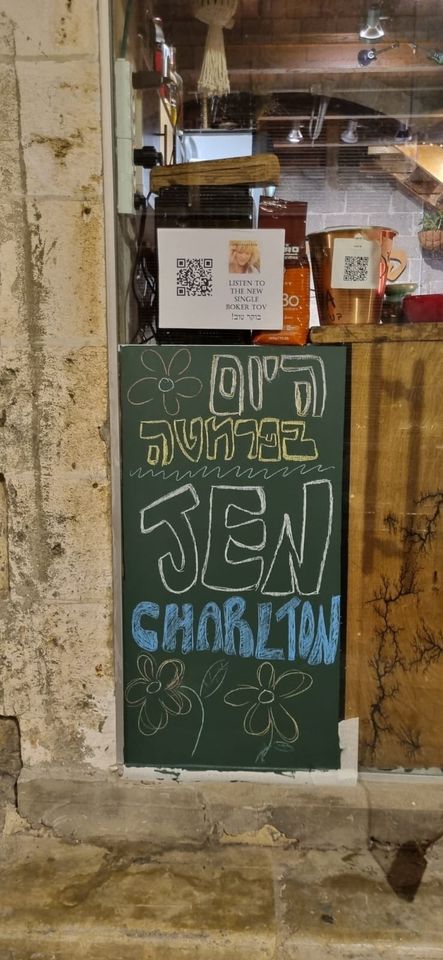 LISTEN TO
THE NEW
SINGLE
BOKER TOV
בוקר טוב!
היום
בפרמטה
JEN
CHARLTON